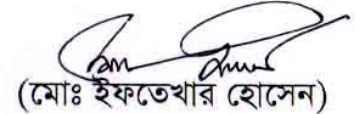 (মোঃ ইফতেখার হোসেন)